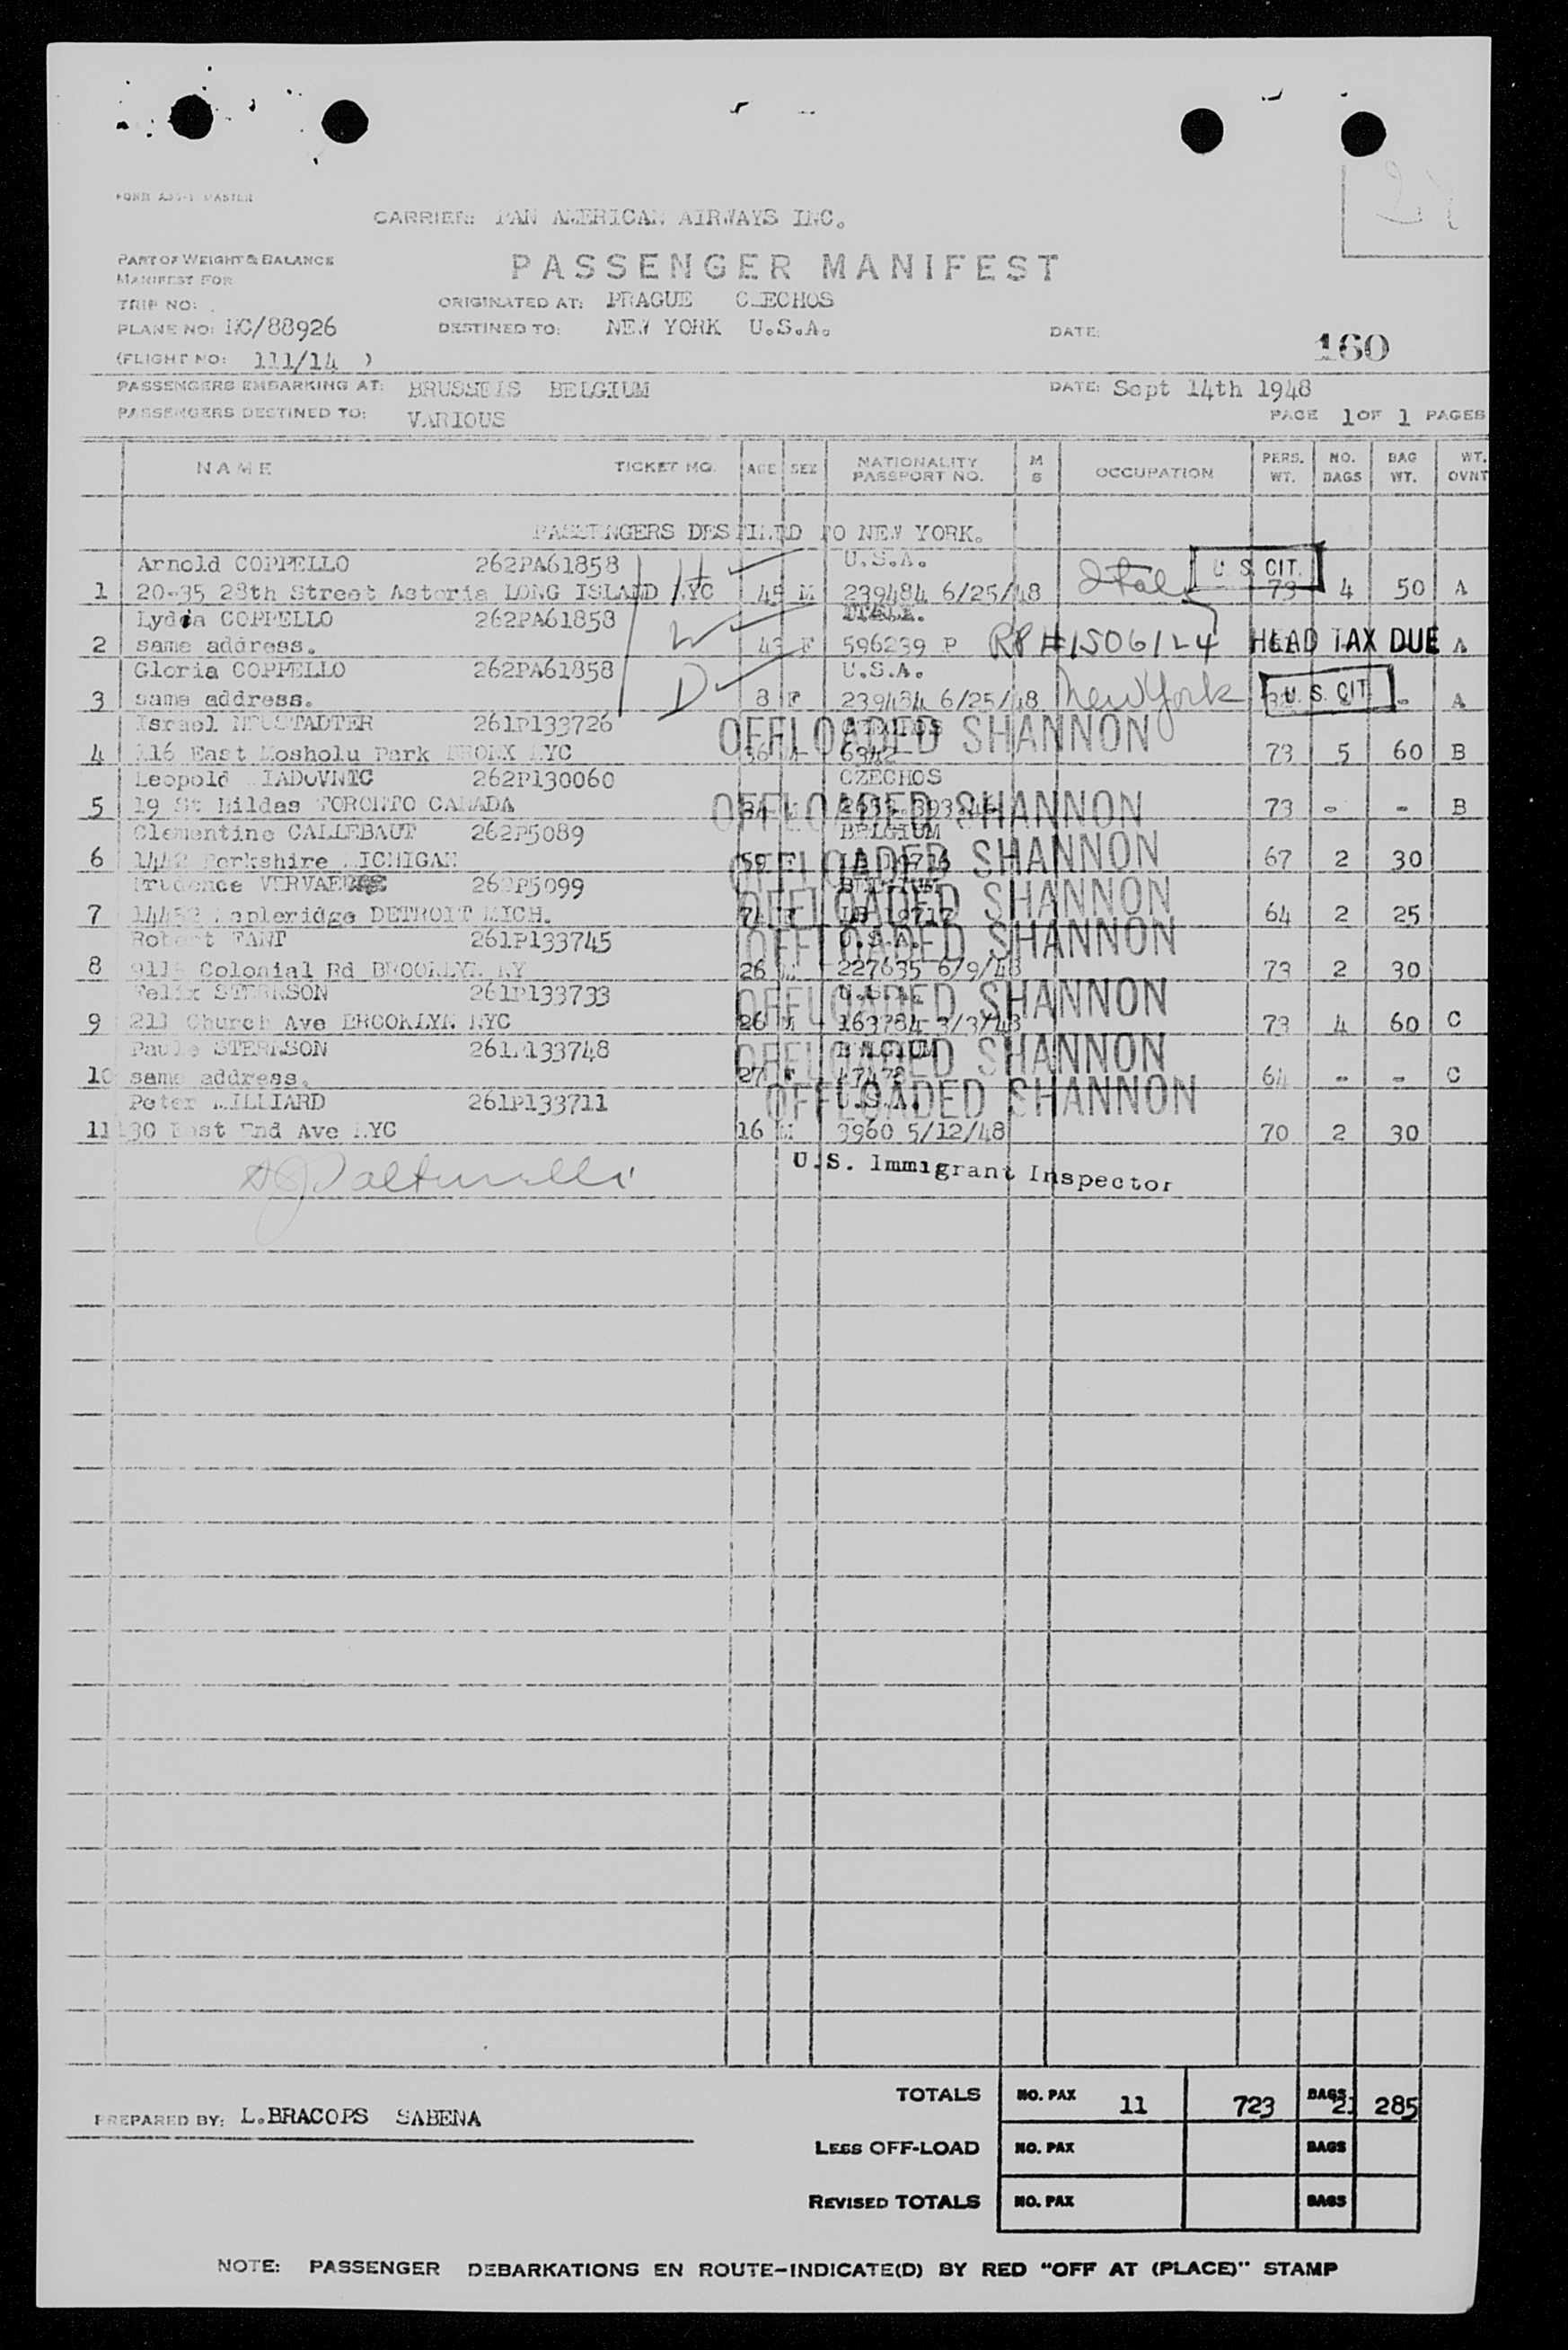 CARRIER: PAN AMERICAN AIRWAYS INC.
PART OF WEIGHT & BALANCE
PASSENGER MANIFEST
MANIFEST FOR
TRIP NO:
ORIGINATED AT: PRAGUE CZECHOS
PLANE NO: NC/88926
DESTINED TO: NEW YORK U.S.A.
DATE:
160
(FLIGHT NO: 111/14 )
PASSENGERS EMBARKING AT: BRUSSELS BELGIUM
DATE: Sept 14th 1948
PASSENGERS DESTINED TO: VARIOUS
PAGE 1 OF 1 PAGES
NAME TICKET NO. AGE SEX NATIONALITY PASSPORT NO. M S OCCUPATION PERS. WT. NO. BAGS BAG WT. WT. OVNT
PASSENGERS DESTINED TO NEW YORK.
Arnold COPPELLO 262PA61858 H U.S.A. U.S. CIT.
1 20-35 28th Street Astoria LONG ISLAND NYC 45 M 239484 6/25/48 Ital 73 4 50 A
Lydia COPPELLO 262PA61858 W ITALY.
2 same address. 43 F 596239 P RP #1506124 HEAD TAX DUE A
Gloria COPPELLO 262PA61858 D U.S.A.
3 same address. 8 F 239484 6/25/48 New York U.S. CIT. - A
Israel NEUSTADTER 261P133726 OFFLOADED SHANNON
4 East Mosholu Park BRONX NYC 6342 73 5 60 B
Leopold 262P130060 CZECHOS
5 19 St Hildas TORONTO CANADA OFFLOADED SHANNON 73 - - B
Clementine CALLEBAUT 262P5089 BELGIUM
6 MICHIGAN 59 F OFFLOADED SHANNON 67 2 30
Prudence 262P5099 BELGIUM
7 Mapleridge DETROIT MICH. OFFLOADED SHANNON 64 2 25
Robert FANT 261P133745 U.S.A. OFFLOADED SHANNON
8 Colonial Rd BROOKLYN NY 26 M 227635 6/9/48 73 2 30
Felix STERNSON 261P133733 U.S.A. OFFLOADED SHANNON
9 211 Church Ave BROOKLYN NYC 26 M 163784 3/3/48 73 4 60 C
Paule STERNSON 261P133748 BELGIUM OFFLOADED SHANNON
10 same address. 27 F 64 - - C
Peter MILLIARD 261P133711 U.S.A. OFFLOADED SHANNON
11 130 East End Ave NYC 16 M 3960 5/12/48 70 2 30
U.S. Immigrant Inspector
TOTALS NO. PAX 11 723 BAGS 21 285
PREPARED BY: L.BRACOPS SABENA
LESS OFF-LOAD NO. PAX BAGS
REVISED TOTALS NO. PAX BAGS
NOTE: PASSENGER DEBARKATIONS EN ROUTE-INDICATE(D) BY RED "OFF AT (PLACE)" STAMP